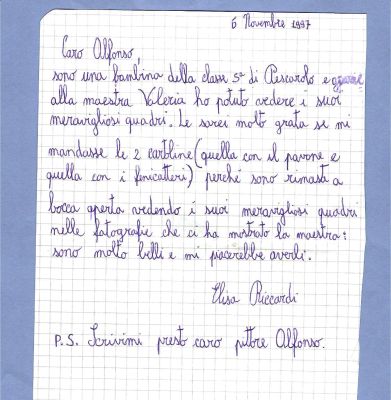 6 Novembre 1997
Caro Alfonso,
sono una bambina della class 5ª di Pescarolo e grazie
alla maestra Valeria ho potuto vedere i suoi
meravigliosi quadri. Le sarei molto grata se mi
mandasse le 2 cartoline (quella con il pavone e
quella con i fenicotteri) perché sono rimasta a
bocca aperta vedendo i suoi meravigliosi quadri
nelle fotografie che ci ha mostrato la maestra:
sono molto belli e mi piacerebbe averli.
Elisa Riccardi
P.S. Scrivimi presto caro pittore Alfonso.